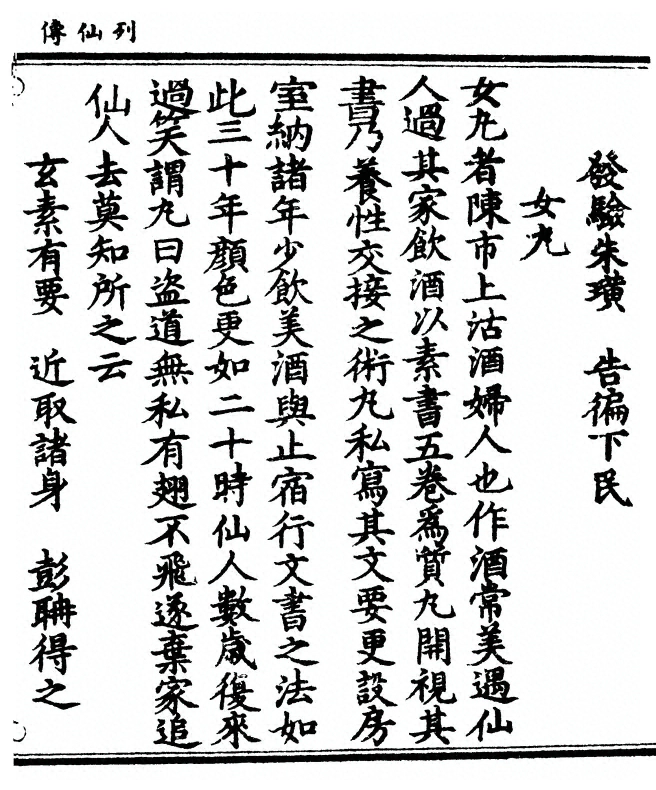 列仙傳
發驗朱璜　告徧下民
女丸
女丸者陳市上沽酒婦人也作酒常美遇仙
人過其家飲酒以素書五卷為質丸開視其
書乃養性交接之術丸私寫其文要更設房
室納諸年少飲美酒與止宿行文書之法如
此三十年顏色更如二十時仙人數歲復來
過笑謂丸曰盜道無私有翅不飛遂棄家追
仙人去莫知所之云
玄素有要　近取諸身　彭聃得之